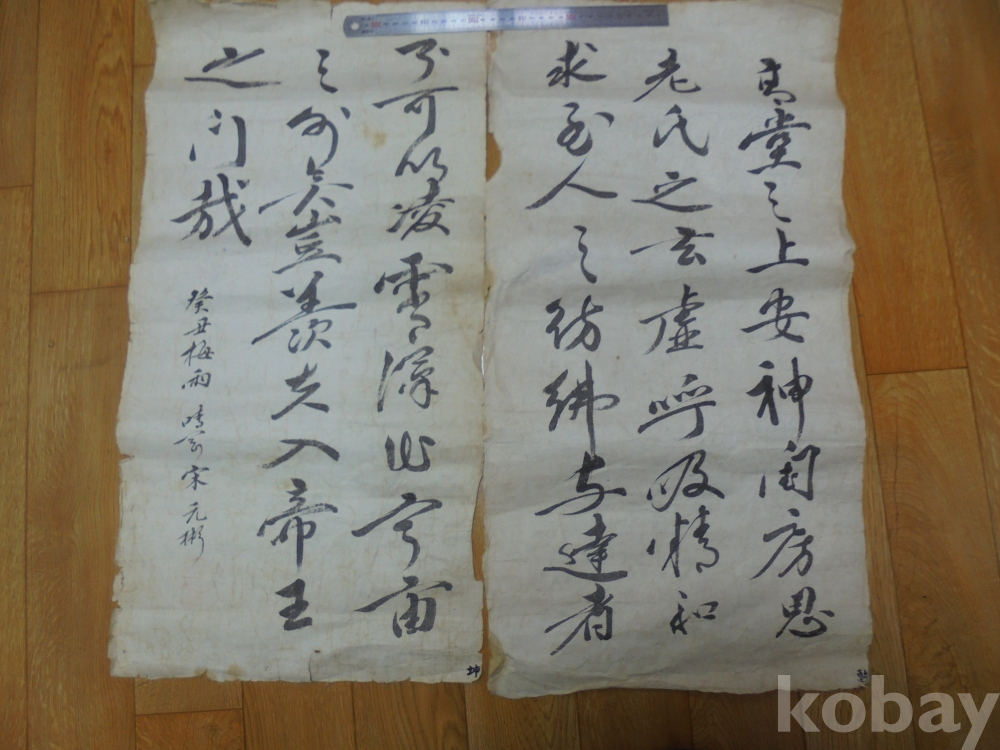 高堂之上安神閨房思
老氏之玄虛呼吸精和
求至人之彷彿与達者
乾
可以凌霄漢出宇宙
之外矣豈羨夫入帝王
之门哉
癸丑梅雨 晴 宋元彬
坤
kobay